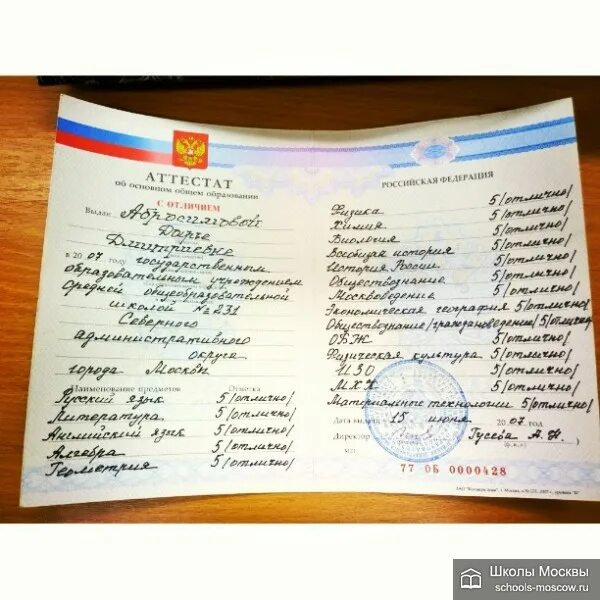 АТТЕСТАТ
об основном общем образовании
С ОТЛИЧИЕМ
Выдан Абросимовой
Дарье
Дмитриевне
в 2007 году государственным
образовательным учреждением
средней общеобразовательной
школой № 231
Северного
административного
округа
города Москвы
Наименование предметов Отметка
Русский язык 5/отлично/
Литература 5/отлично/
Английский язык 5/отлично/
Алгебра 5/отлично/
Геометрия 5/отлично/
РОССИЙСКАЯ ФЕДЕРАЦИЯ
Физика 5/отлично/
Химия 5/отлично/
Биология 5/отлично/
Всеобщая история 5/отлично/
История России 5/отлично/
Обществознание 5/отлично/
Москвоведение 5/отлично/
Экономическая география 5/отлично/
Обществознание/граждановедение/ 5/отлично/
ОБЖ 5/отлично/
Физическая культура 5/отлично/
ИЗО 5/отлично/
МХК 5/отлично/
Материальные технологии 5/отлично/
Дата выдачи 15 июня 2007 год
Директор Гусева А. Н.
М.П.
77 ОБ 0000428
Школы Москвы
schools-moscow.ru